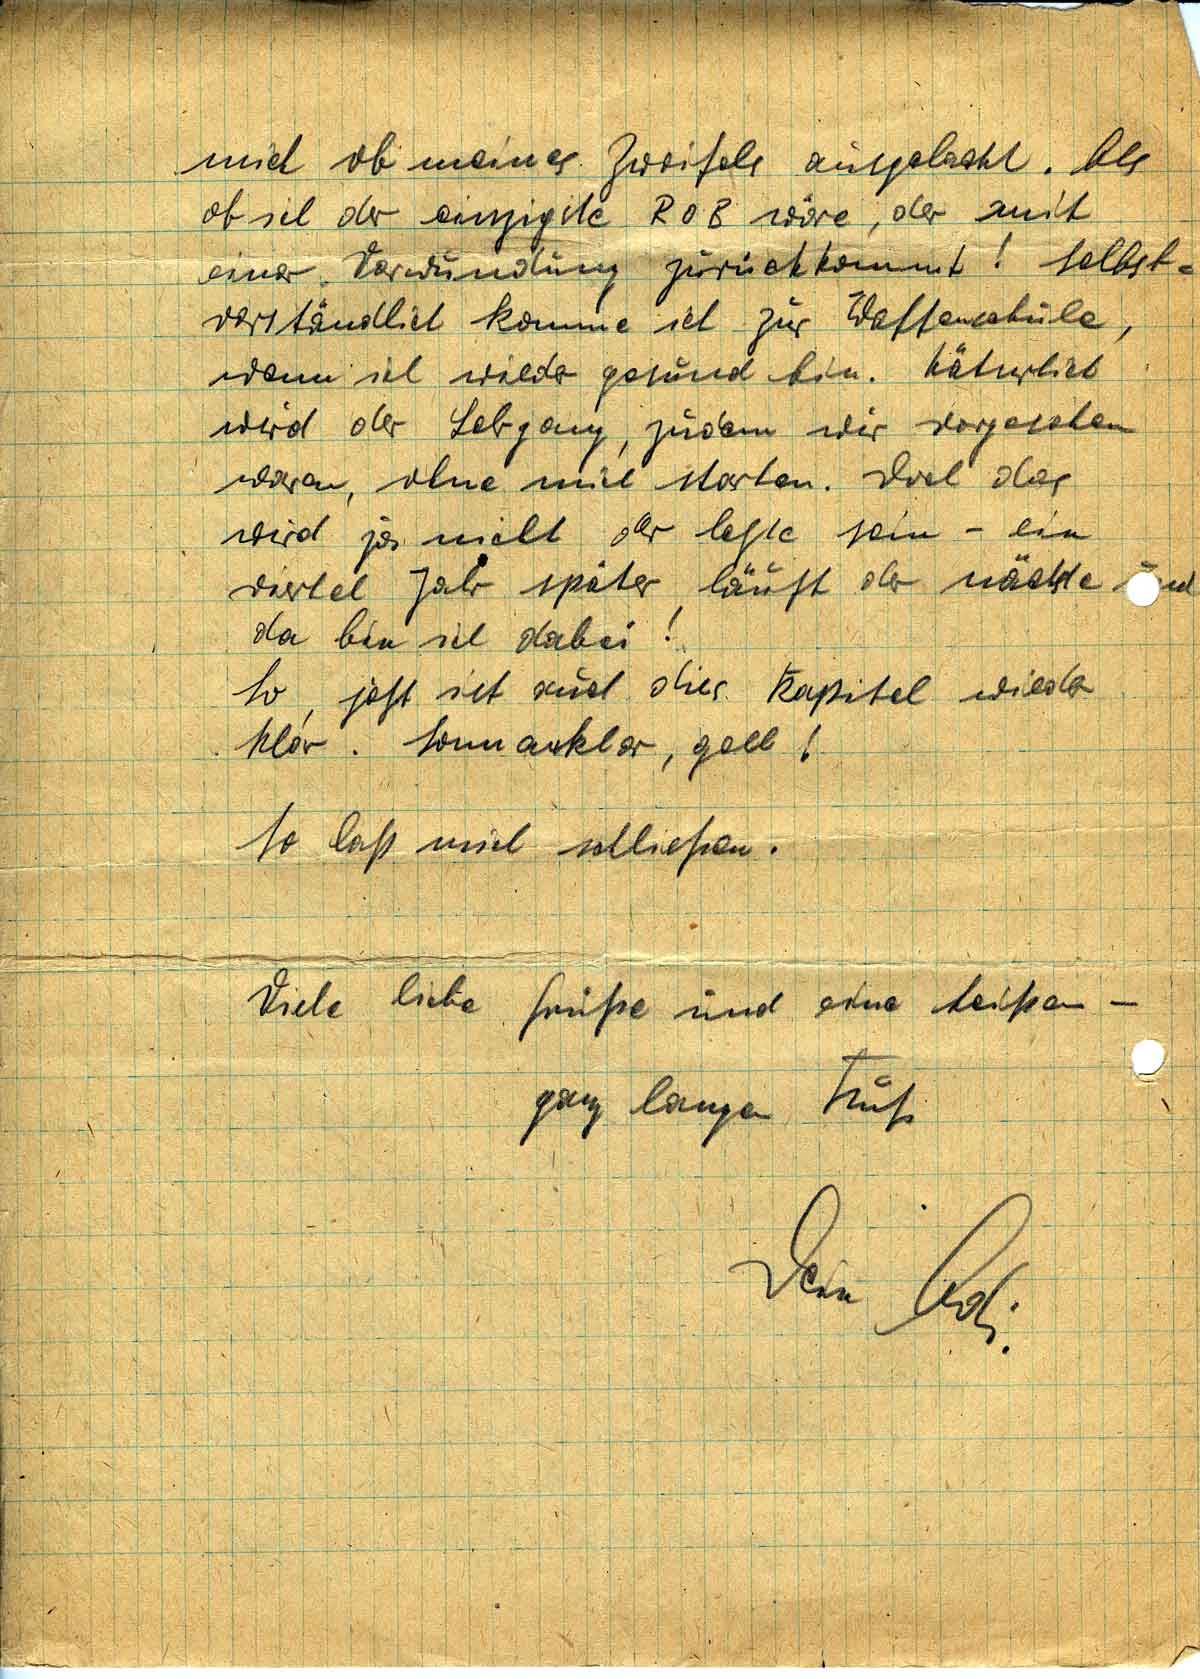 mich ob meines Zweifels ausgelacht. Als
ob ich der einzigste ROB wäre, der mit
einer Verwundung zurückkommt! Selbst-
verständlich komme ich zur Waffenschule,
wenn ich wieder gesund bin. Natürlich
wird der Lehrgang, zudem wir vorgesehen
waren, ohne mich starten. Doch das
wird ja nicht der letzte sein – ein
viertel Jahr später läuft der nächste und
da bin ich dabei!
So, jetzt ist auch dies Kapitel wieder
klar. Sonnenklar, gell!
So laß mich schließen.
Viele liebe Grüße und eine heißen –
ganz langen Kuß
Dein